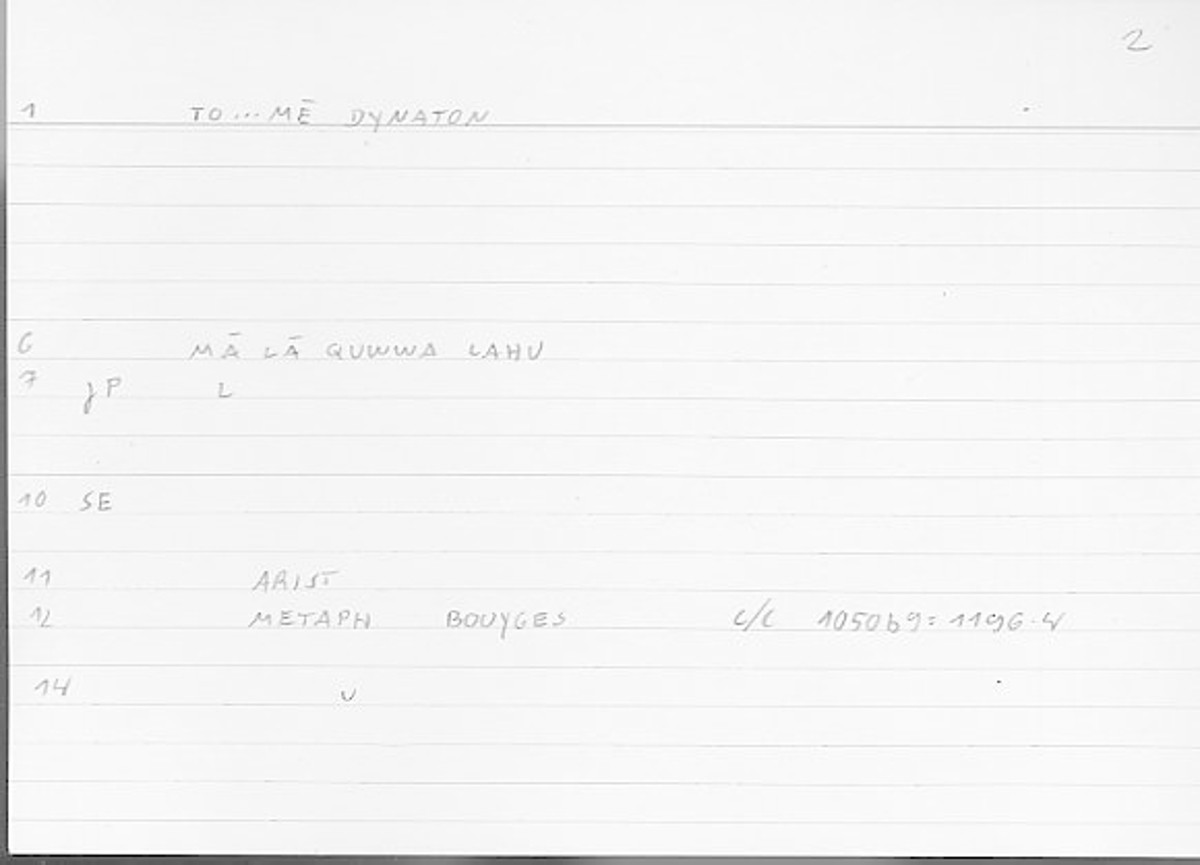 2
1 TO...MĒ DYNATON
6 MĀ LĀ QUWWA LAHU
7 JP L
10 SE
11 ARIST
12 METAPH BOUYGES C/C 1050b9=1196.4
14 U